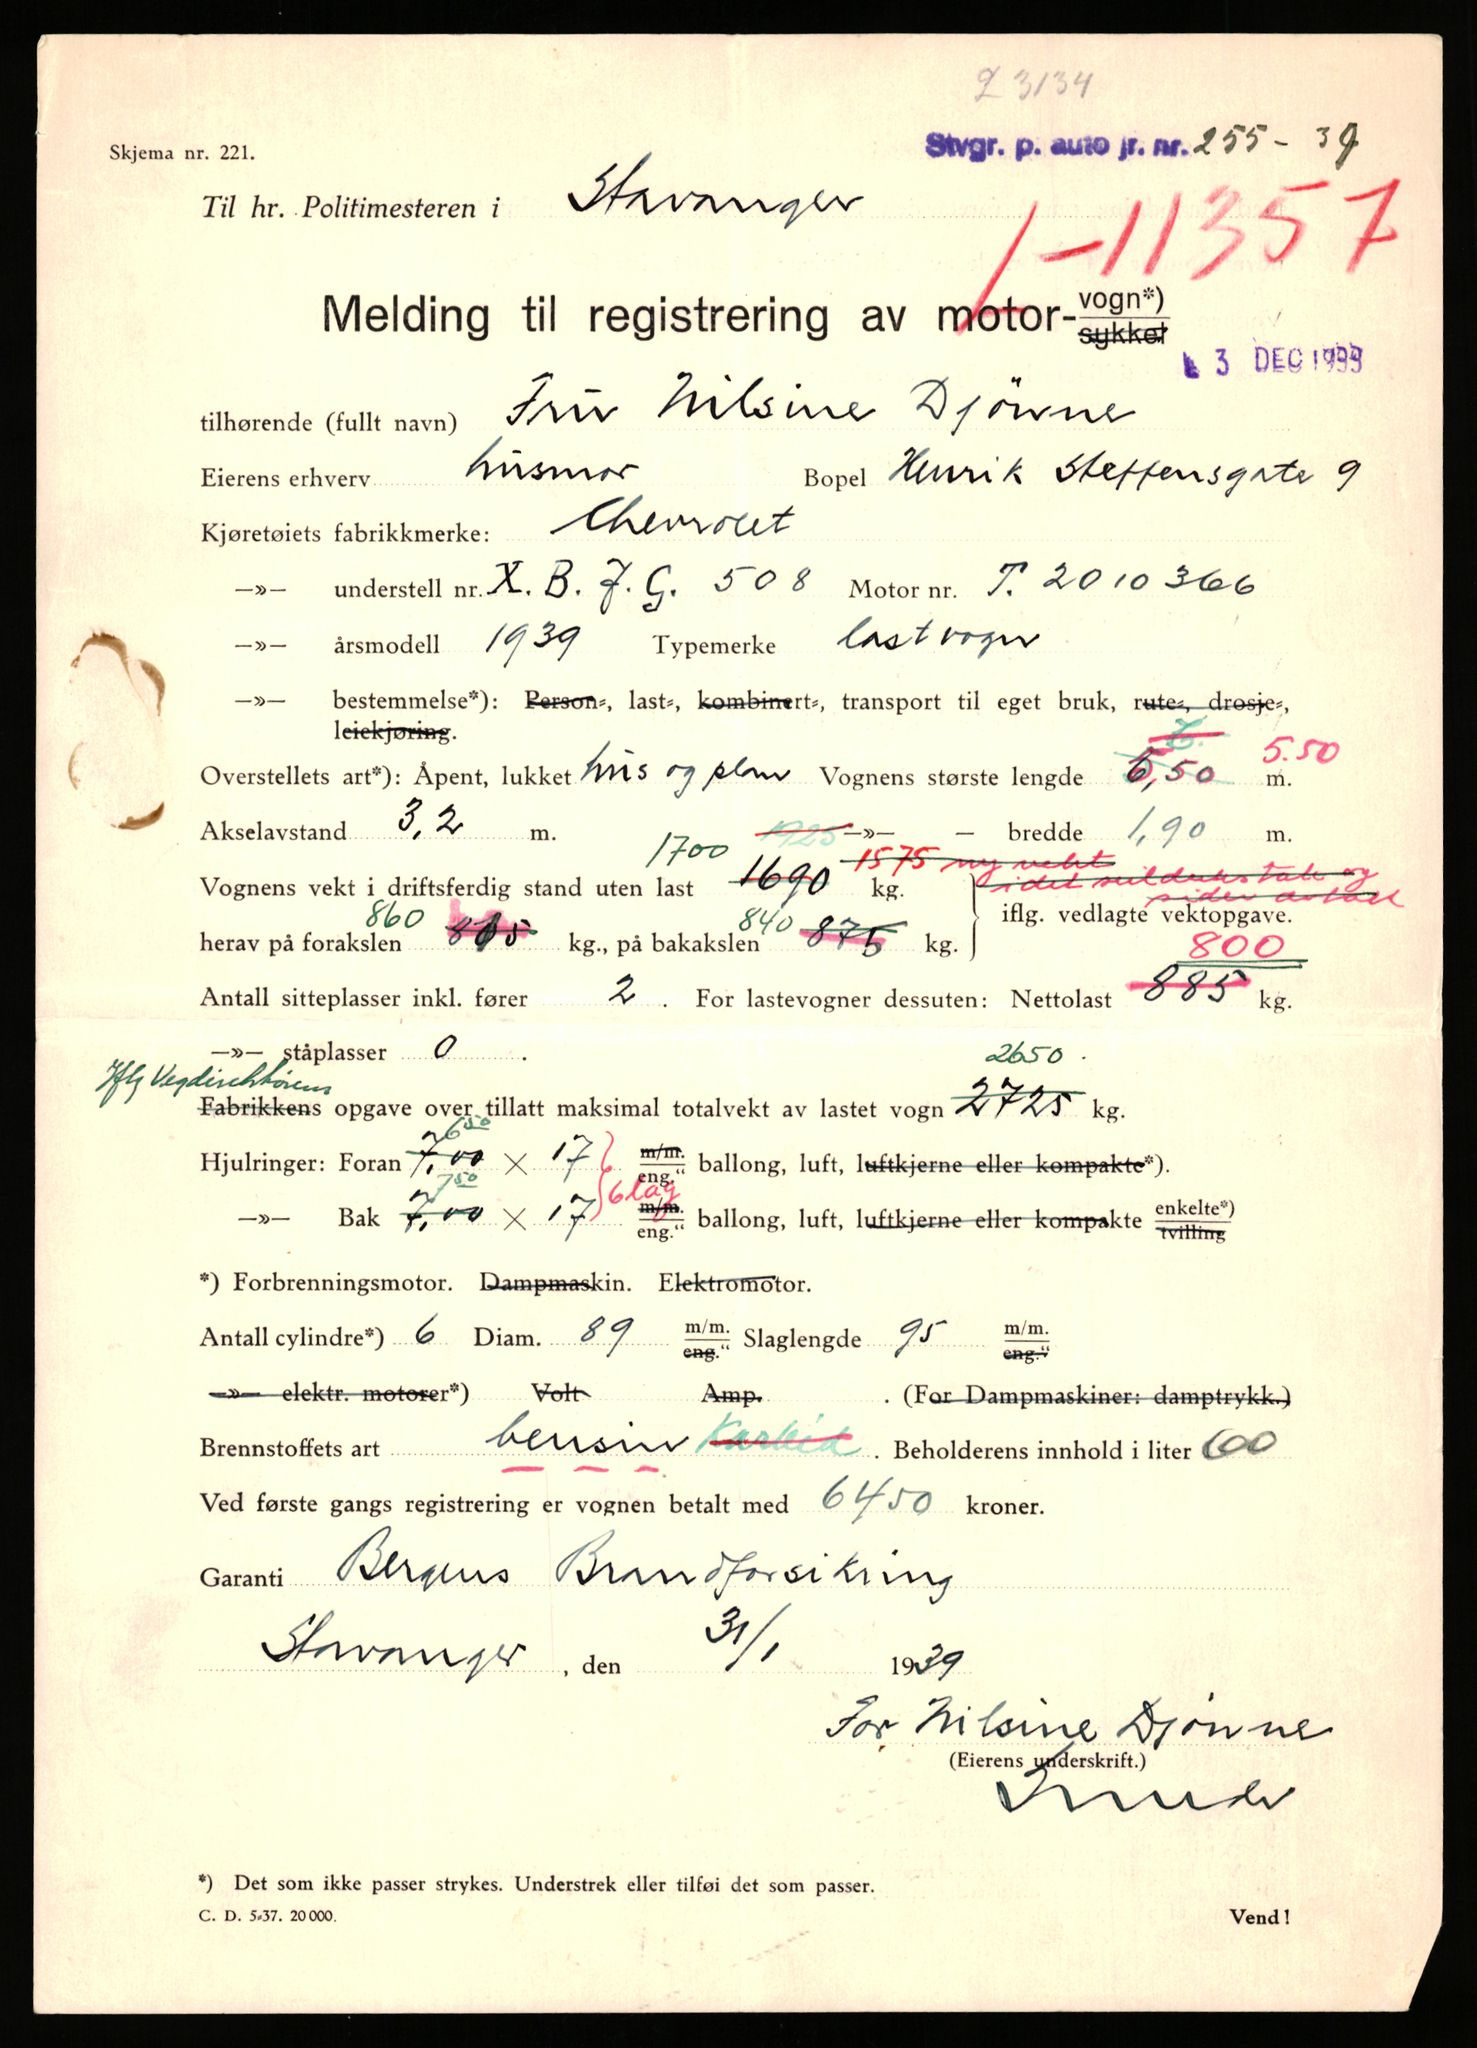 2 3134
Stvgr. p. auto jr. nr. 255-39
Skjema nr. 221.
Til hr. Politimesteren i Stavanger
1-11357
Melding til registrering av motor-vogn*)
sykkel
3 DEC 1939
tilhørende (fullt navn) Fru Nilsine Djönne
Eierens erhverv husmor Bopel Henrik Steffensgate 9
Kjøretøiets fabrikkmerke: Chevrolet
—»— understell nr. X. B. J. G. 508 Motor nr. T. 2010366
—»— årsmodell 1939 Typemerke lastvogn
—»— bestemmelse*): Person-, last-, kombinert-, transport til eget bruk, rute-, drosje-,
leiekjøring.
5.50
Overstellets art*): Åpent, lukket hus og plan Vognens største lengde 6,50 m.
Akselavstand 3,2 m. —»— — bredde 1,90 m.
1700 1925 1575 ny vekt
Vognens vekt i driftsferdig stand uten last 1690 kg.
860 840 iflg. vedlagte vektopgave.
herav på forakslen 815 kg., på bakakslen 875 kg.
800
Antall sitteplasser inkl. fører 2 . For lastevogner dessuten: Nettolast 885 kg.
—»— ståplasser 0 .
2650.
Iflg Vegdirektørens
Fabrikkens opgave over tillatt maksimal totalvekt av lastet vogn 2725 kg.
6 50
Hjulringer: Foran 7,00 × 17 m/m. eng.“ ballong, luft, luftkjerne eller kompakte*).
7 50 6 lag
—»— Bak 7,00 × 17 m/m. eng.“ ballong, luft, luftkjerne eller kompakte enkelte*) tvilling
*) Forbrenningsmotor. Dampmaskin. Elektromotor.
Antall cylindre*) 6 Diam. 89 m/m. eng.“ Slaglengde 95 m/m. eng.“
—»— elektr. motorer*) Volt Amp. . (For Dampmaskiner: damptrykk.)
Brennstoffets art bensin Karbid . Beholderens innhold i liter 60
Ved første gangs registrering er vognen betalt med 6450 kroner.
Garanti Bergens Brandforsikring
Stavanger , den 31/1 1939
For Nilsine Djönne
(Eierens underskrift.)
*) Det som ikke passer strykes. Understrek eller tilføi det som passer.
C. D. 5-37. 20 000.
Vend!